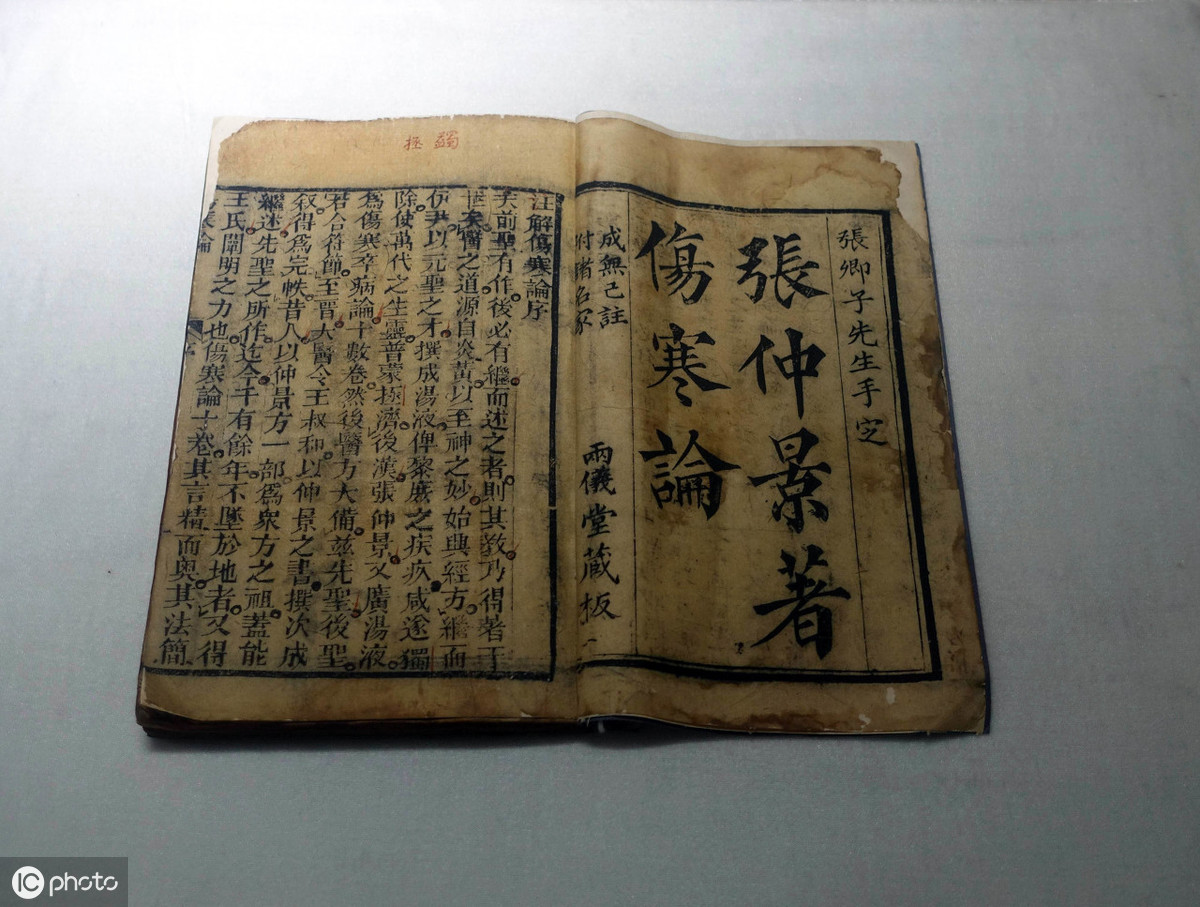 張卿子先生手定
張仲景著
傷寒論
成無己註
附諸名家
兩儀堂藏板
蠲
拯
注解傷寒論序
夫前聖有作後必有繼而述之者則其教乃得著于
世矣醫之道源自炎黃以至神之妙始興經方繼而
伊尹以元聖之才撰成湯液俾黎庶之疾疚咸遂蠲
除使萬代之生靈普蒙拯濟後漢張仲景又廣湯液
爲傷寒卒病論十數卷然後醫方大備茲先聖後聖
若合符節至晉大醫令王叔和以仲景之書撰次成
叙得爲完帙昔人以仲景方一部爲衆方之祖蓋能
繼述先聖之所作迄今千有餘年不墜於地者又得
王氏闡明之力也傷寒論十卷其言精而奧其法簡
IC photo